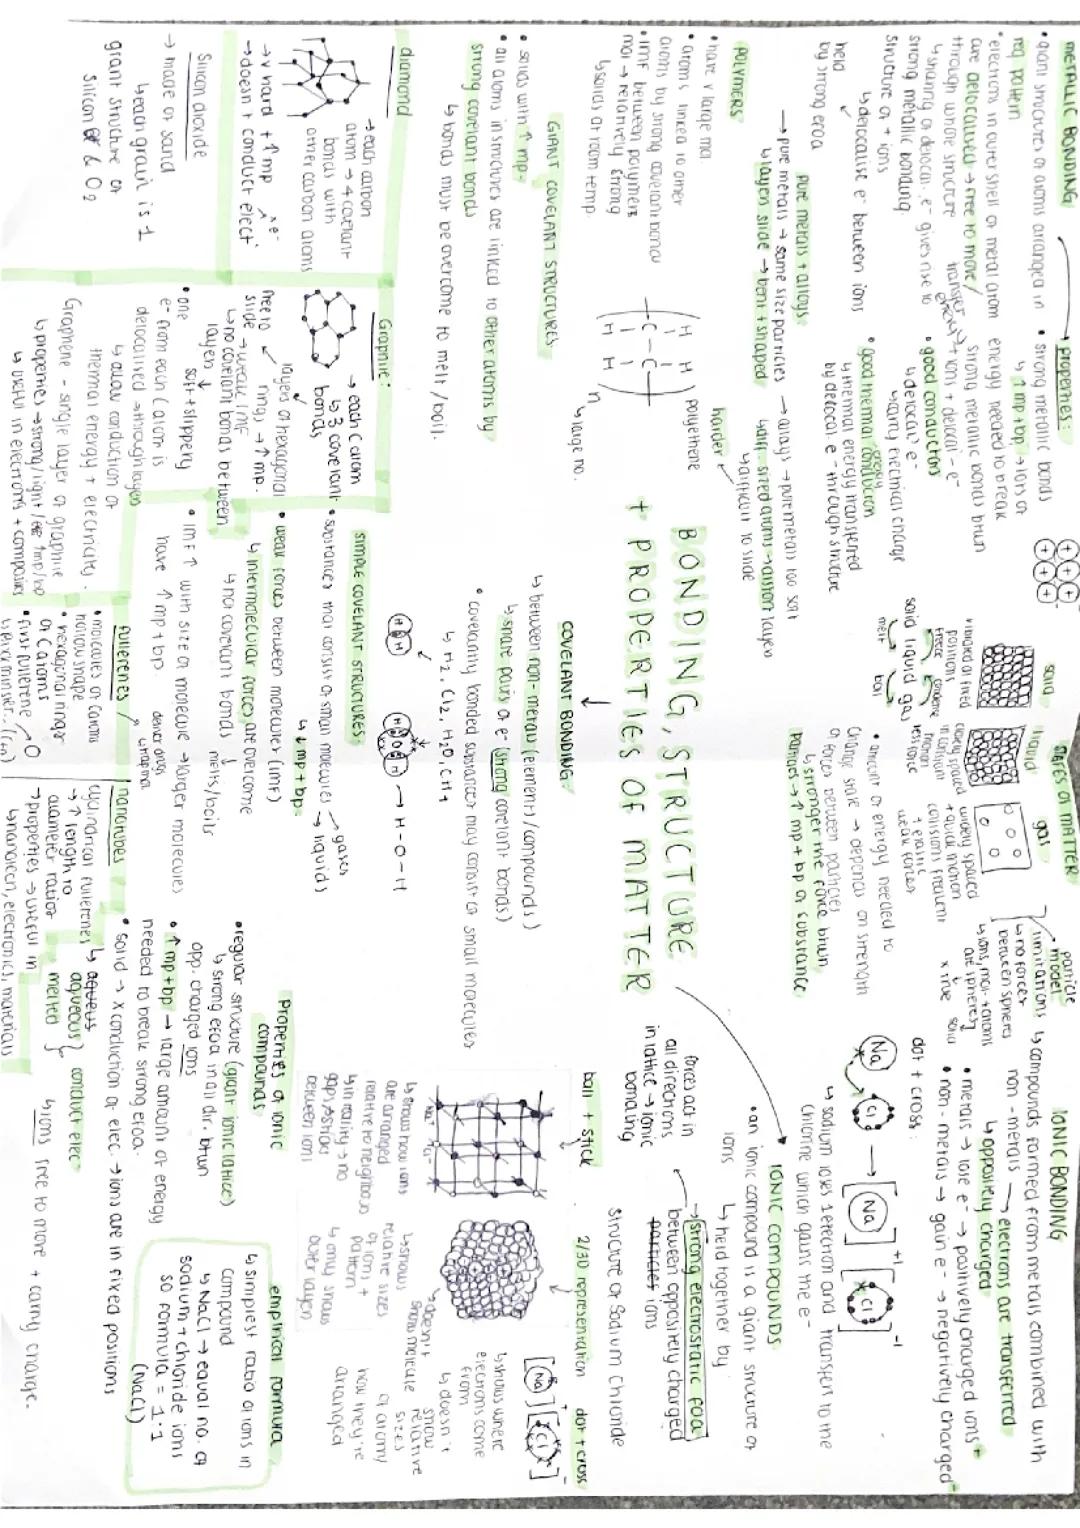 METALLIC BONDING
• giant structures of atoms arranged in
reg pattern
• electrons in outer shell of metal atom
are delocalised → free to move /
through whole structure
↳ sharing of delocal. e⁻ gives rise to
strong metallic bonding
structure of + ions
↳ delocalise e⁻ between ions
held
by strong efoa
→ properties:
• strong metallic bonds
↳ ↑ mp + bp → lots of
energy needed to break
strong metallic bonds btwn
+ ions + delocal - e⁻
• good conductors
↳ delocal e⁻
carry electrical charge
• good thermal conduction
energy
↳ thermal energy transferred
by delocal e⁻ through structure
pure metals + alloys:
→ pure metals → same size particles
↳ layers slide → bent + shaped
→ alloys → pure metals too soft
↳ diff. sized atoms → distort layers
↳ difficult to slide
harder
POLYMERS
• have v large mol
• atoms linked to other
atoms by strong covalent bonds
• imf between polymers
mol → relatively strong
↳ solids at room temp
H H
-C-C-
H H
n
polyethene
↳ large no.
GIANT COVELANT STRUCTURES
• solids with ↑ mp.
• all atoms in structures are linked to other atoms by
strong covelant bonds
↳ bonds must be overcome to melt / boil.
diamond
→ each carbon
atom → 4 covelant
bonds with
other carbon atoms
→ v hard + ↑ mp
→ doesn't conduct elect
x e⁻
Silicon dioxide
→ made of sand
↳ each grain is 1
giant structure of
silicon & O2
Graphite:
→ each C atom
↳ 3 covelant
bonds
layers of hexagonal
rings → ↑ mp.
free to
slide → weak IMF
↳ no covelant bonds between
layers ↓
soft + slippery
• one
e⁻ from each C atom is
delocalised → through layers
↳ allow conduction of
thermal energy + electricity.
Graphene - single layer of graphite
↳ properties → strong / light / ↑mp/bp
↳ useful in electronics + composites
STATES OF MATTER
solid
liquid
gas
vibrate at fixed
positions
closely spaced
in constant
motion
less force
widely spaced
+ quick motion
collisions frequent
+ elastic
weak forces
freeze
condense
solid liquid gas
melt
boil
particle
model
limitations
↳ no forces
between spheres
↳ ions, mol + atoms
are spheres
x true
solid
• amount of energy needed to
change state → depends on strength
of forces between particles
↳ stronger the force btwn
particles → ↑ mp + bp of substance
BONDING, STRUCTURE
+ PROPERTIES OF MATTER
COVELANT BONDING:
↳ between non-metals (elements/compounds)
↳ share pairs of e⁻ (strong covelant bonds)
• covelantly bonded substances may consist of small molecules
↳ H2, Cl2, H2O, CH4
→ H-O-H
SIMPLE COVELANT STRUCTURES
• substances that consist of small molecules → gases
→ liquids
• weak forces between molecules (IMF)
↳ ↓ mp + bp.
↳ intermolecular forces are overcome
↳ not covelant bonds
melts/boils
• IMF ↑ with size of molecule → larger molecules
have ↑ mp + bp.
fullerenes
deliver drugs
↳ trap mol
• molecules of C atoms
hollow shape
• hexagonal rings
of C atoms
• first fullerene
nanotubes
cylindrical fullerenes
→ ↑ length to
diameter ratios
→ properties → useful in
↳ nanotech, electronics, materials
IONIC BONDING
↳ compounds formed from metals combined with
non-metals → electrons are transferred
↳ oppositely charged
• metals → lose e⁻ → positively charged ions +
• non-metals → gain e⁻ → negatively charged⁻
dot + cross:
Na
Cl
→ [Na]+1 [Cl]-1
↳ sodium loses 1 electron and transfers to the
chlorine which gains the e⁻
IONIC COMPOUNDS
• an ionic compound is a giant structure of
ions
↳ held together by
→ strong electrostatic foa
between oppositely charged
particles ions
forces act in
all directions
in lattice → ionic
bonding
structure of Sodium Chloride
ball + stick
↳ shows how ions
are arranged
relative to neighbours
↳ in reality → no
gaps/sticks
between ions
2/3D representation
↳ shows
relative sizes
of ions +
pattern
↳ only shows
outer layers
dot + cross
[Na]+ [Cl]-
↳ shows where
electrons come
from
↳ doesn't
show
relative
sizes
of atoms
how they're
arranged
↳ doesn't
show molecule
Properties of ionic
compounds
• regular structure (giant ionic lattice)
↳ strong efoa in all dir. btwn
opp. charged ions
• ↑ mp + bp → large amount of energy
needed to break strong efoa.
• solid → x conduction of elec. → ions are in fixed positions
↳ aqueous
aqueous } conduct elec
melted
↳ ions free to move + carry charge.
empirical formula
↳ simplest ratio of ions in
compound
↳ NaCl → equal no. of
sodium + chloride ions
so formula = 1:1
(NaCl)